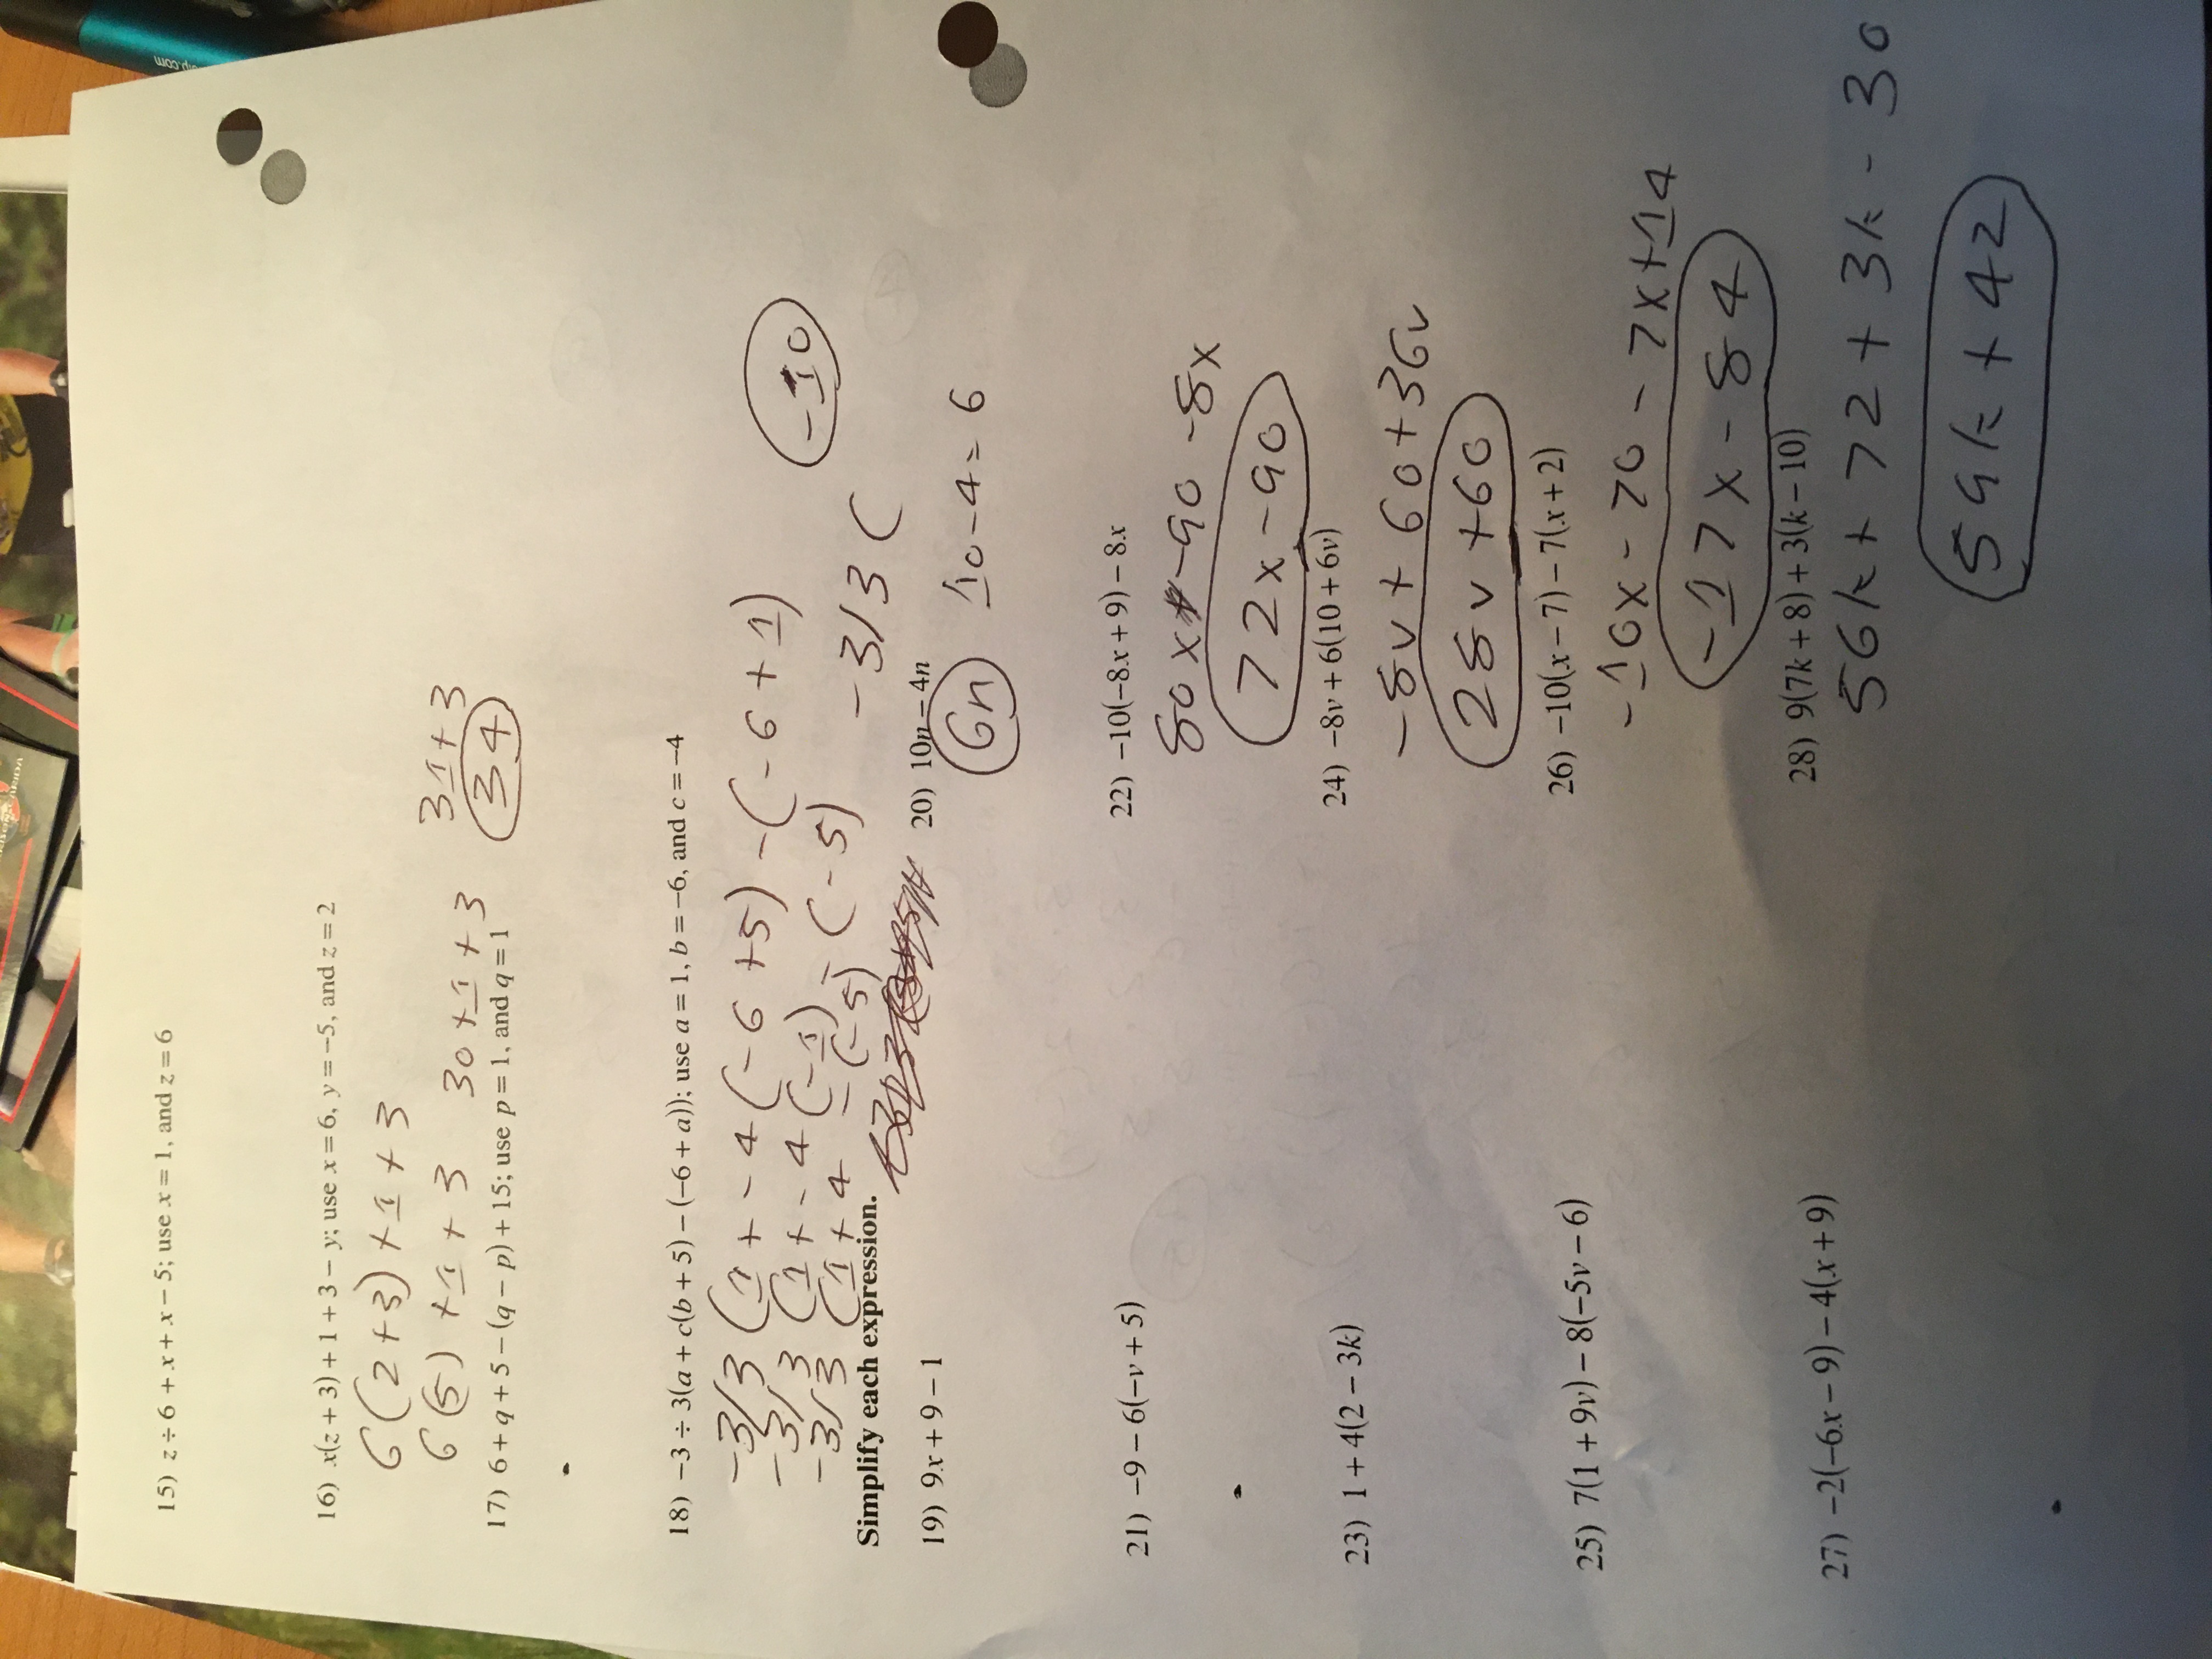 15) z ÷ 6 + x + x − 5; use x = 1, and z = 6
16) x(z + 3) + 1 + 3 − y; use x = 6, y = −5, and z = 2
6(2+3)+1+3
6(5)+1+3 30+1+3 31+3
34
17) 6 + q + 5 − (q − p) + 15; use p = 1, and q = 1
18) −3 ÷ 3(a + c(b + 5) − (−6 + a)); use a = 1, b = −6, and c = −4
-3/3 (1+-4(-6+5)-(-6+1)
-3/3 (1+-4(-1)-(-5)
-10
-3/3 (1+4 -(-5)
-3/3 (
Simplify each expression.
19) 9x + 9 − 1
20) 10n − 4n
6n 10-4=6
21) −9 − 6(−v + 5)
22) −10(−8x + 9) − 8x
80x-90-8x
72x-90
23) 1 + 4(2 − 3k)
24) −8v + 6(10 + 6v)
-8v+60+36v
28v+60
25) 7(1 + 9v) − 8(−5v − 6)
26) −10(x − 7) − 7(x + 2)
-10x-70-7x+14
-17x-84
27) −2(−6x − 9) − 4(x + 9)
28) 9(7k + 8) + 3(k − 10)
56k+72+3k-30
59k+42